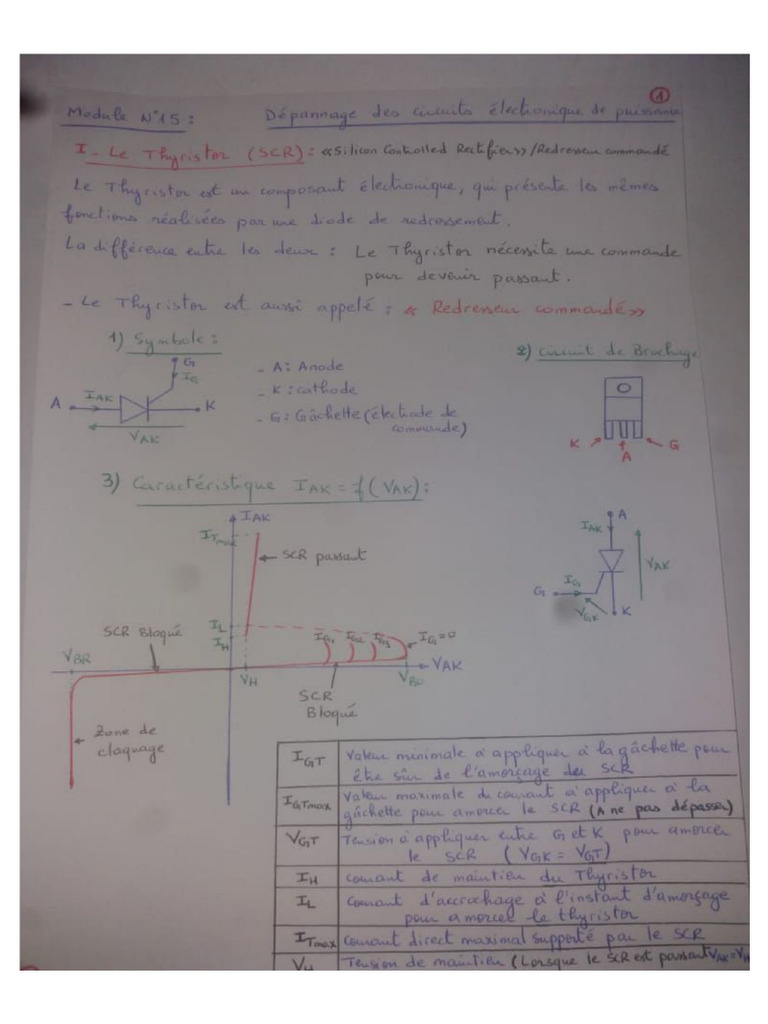 1
Module N°15 : Dépannage des circuits électronique de puissance
I - Le Thyristor (SCR) : «Silicon Controlled Rectifier» / Redresseur commandé
Le Thyristor est un composant électronique, qui présente les mêmes
fonctions réalisées par une diode de redressement.
La différence entre les deux : Le Thyristor nécessite une commande
pour devenir passant.
- Le Thyristor est aussi appelé : « Redresseur commandé »
1) Symbole :
2) Circuit de Brochage
G
IG
A
IAK
K
VAK
- A : Anode
- K : cathode
- G : Gâchette (électrode de
commande)
K
A
G
3) Caractéristique IAK = f(VAK) :
IAK
ITmax
SCR passant
IL
IH
SCR Bloqué
IG1 IG2 IG3 IG=0
VBR
VH
VBO
VAK
SCR
Bloqué
Zone de
claquage
A
IAK
VAK
G
IG
VGK
K
IGT Valeur minimale à appliquer à la gâchette pour
être sûr de l'amorçage du SCR
IGTmax Valeur maximale du courant à appliquer à la
gâchette pour amorcer le SCR (A ne pas dépasser)
VGT Tension à appliquer entre G et K pour amorcer
le SCR ( VGK = VGT)
IH Courant de maintien du Thyristor
IL Courant d'accrochage à l'instant d'amorçage
pour amorcer le thyristor
ITmax courant direct maximal supporté par le SCR
VH Tension de maintien (Lorsque le SCR est passant VAK=VH